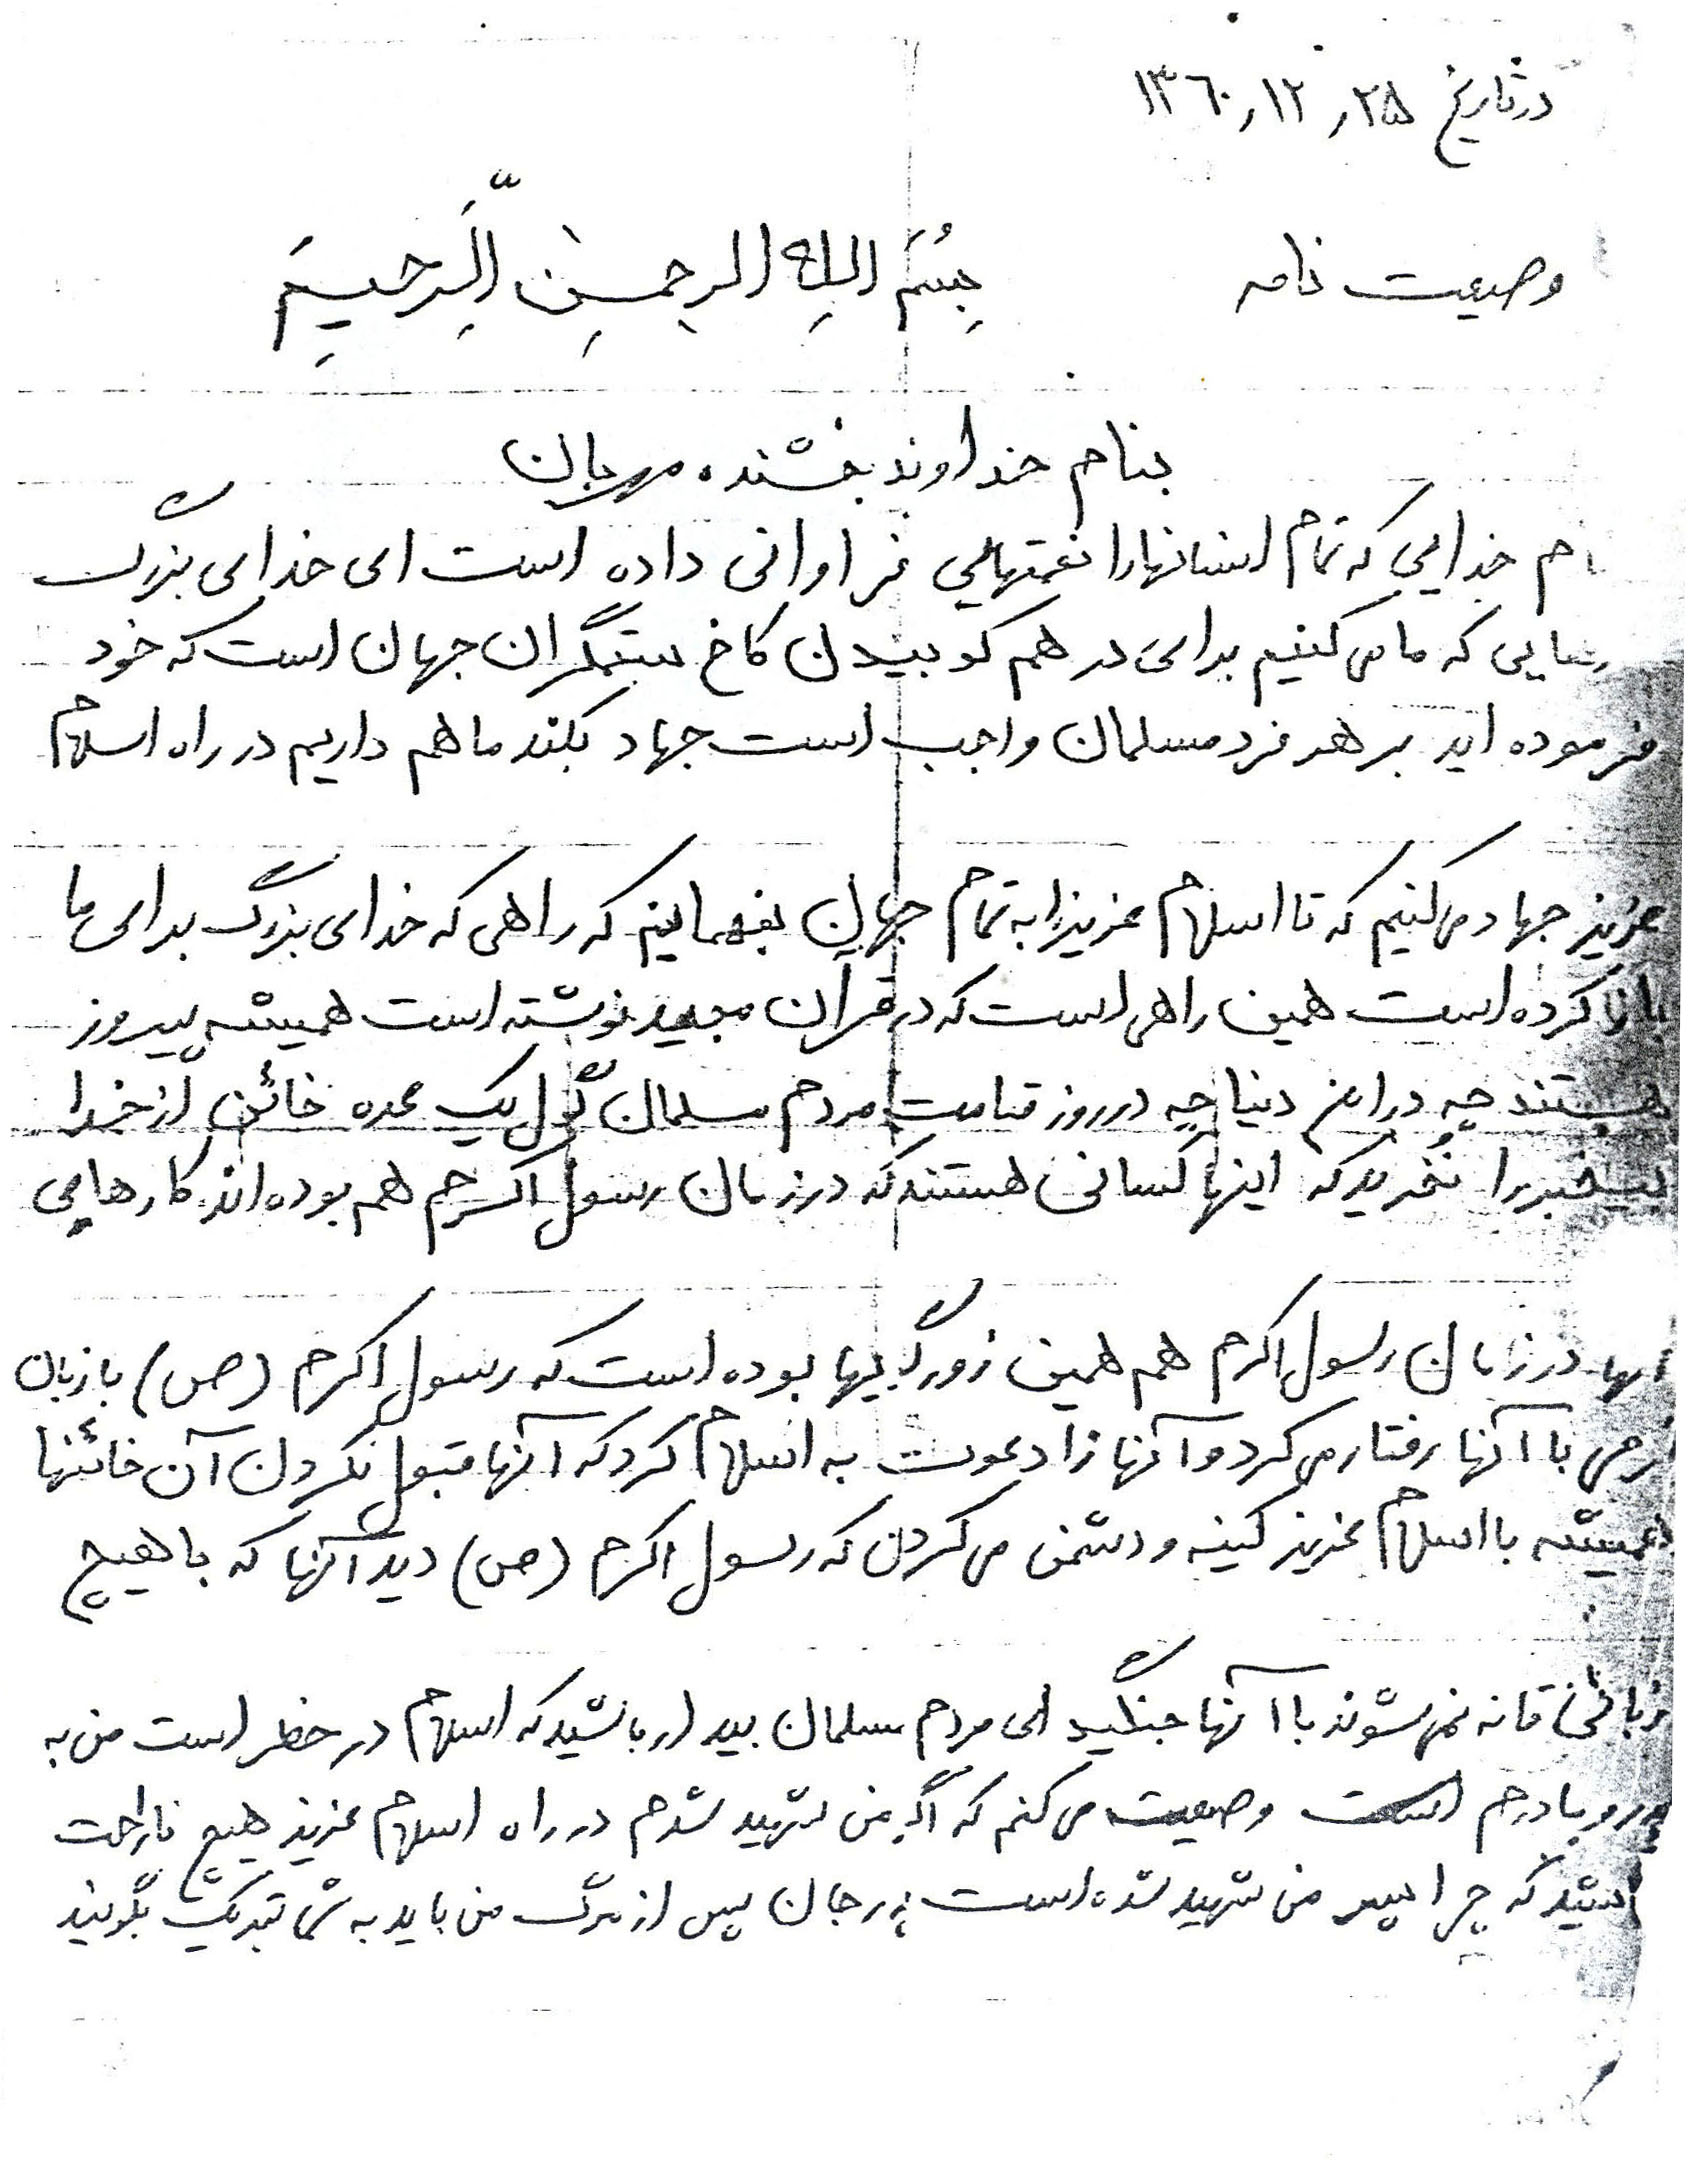 در تاریخ ۱۳۶۰٫۱۲٫۲۵
وصیعت نامه بِسْمَ اللهِ الرحمنِ الَّرحیمِ
بنام خداوند بخشنده مهربان
خدایی که تمام انسانهارا نعمتهایی فراوانی داده است ای خدای بزرگ
که ما می کنیم برای در هم کوبیدن کاخ ستمگران جهان است که خود
فرموده اید بر هر فرد مسلمان واجب است جهاد بکند ما هم داریم در راه اسلام
عزیز جهاد می کنیم که تا اسلام عزیز را به تمام جهان بفهمانیم که راهی که خدای بزرگ برای ما
کرده است همین راهی است که در قرآن مجید نوشته است همیشه پیروز
هستند چه در این دنیا چه در روز قیامت مردم مسلمان گول یک عده خائن از خدا
بیخبر را نخُرید که اینها کسانی هستند که در زمان رسول اکرم هم بوده اند کارهایی
در زمان رسول اکرم هم همین زورگوییها بوده است که رسول اکرم (ص) با زبان
نرمی با آنها رفتار می کرد و آنها را دعوت به اسلام کرد که آنها قبول نکردن آن خائنها
همیشه با اسلام عزیز کینه و دشمنی می کردن که رسول اکرم (ص) دید آنها که با هیچ
زبانی قانه نمی شوند با آنها جنگید ای مردم مسلمان بیدار باشید که اسلام در خطر است من به
مادرم است وصیعت می کنم که اگر من شهید شدم در راه اسلام عزیز هیچ ناراحت
که چرا پسر من شهید شده است پدر جان پس از مرگ من باید به شما تبریک بگویند